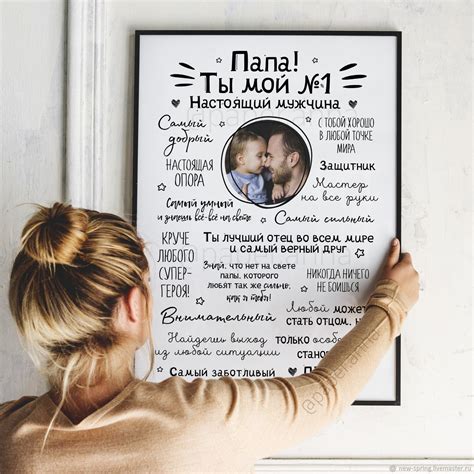 Папа!
Ты мой №1
Настоящий мужчина
Самый
добрый
С тобой хорошо
в любой точке
мира
НАСТОЯЩАЯ
ОПОРА
Защитник
Мастер
на все руки
Самый умный
и знаешь всё-всё на свете
Самый сильный
КРУЧЕ
ЛЮБОГО
СУПЕР-
ГЕРОЯ!
Ты лучший отец во всем мире
и самый верный друг
Знай, что нет на свете
папы, которого
любят так же сильно,
как я тебя!
НИКОГДА НИЧЕГО
НЕ БОИШЬСЯ
Внимательный
Любой может
стать отцом, н
Найдешь выход
из любой ситуации
только особ
станов
Самый заботливый
new-spring.livemaster.ru